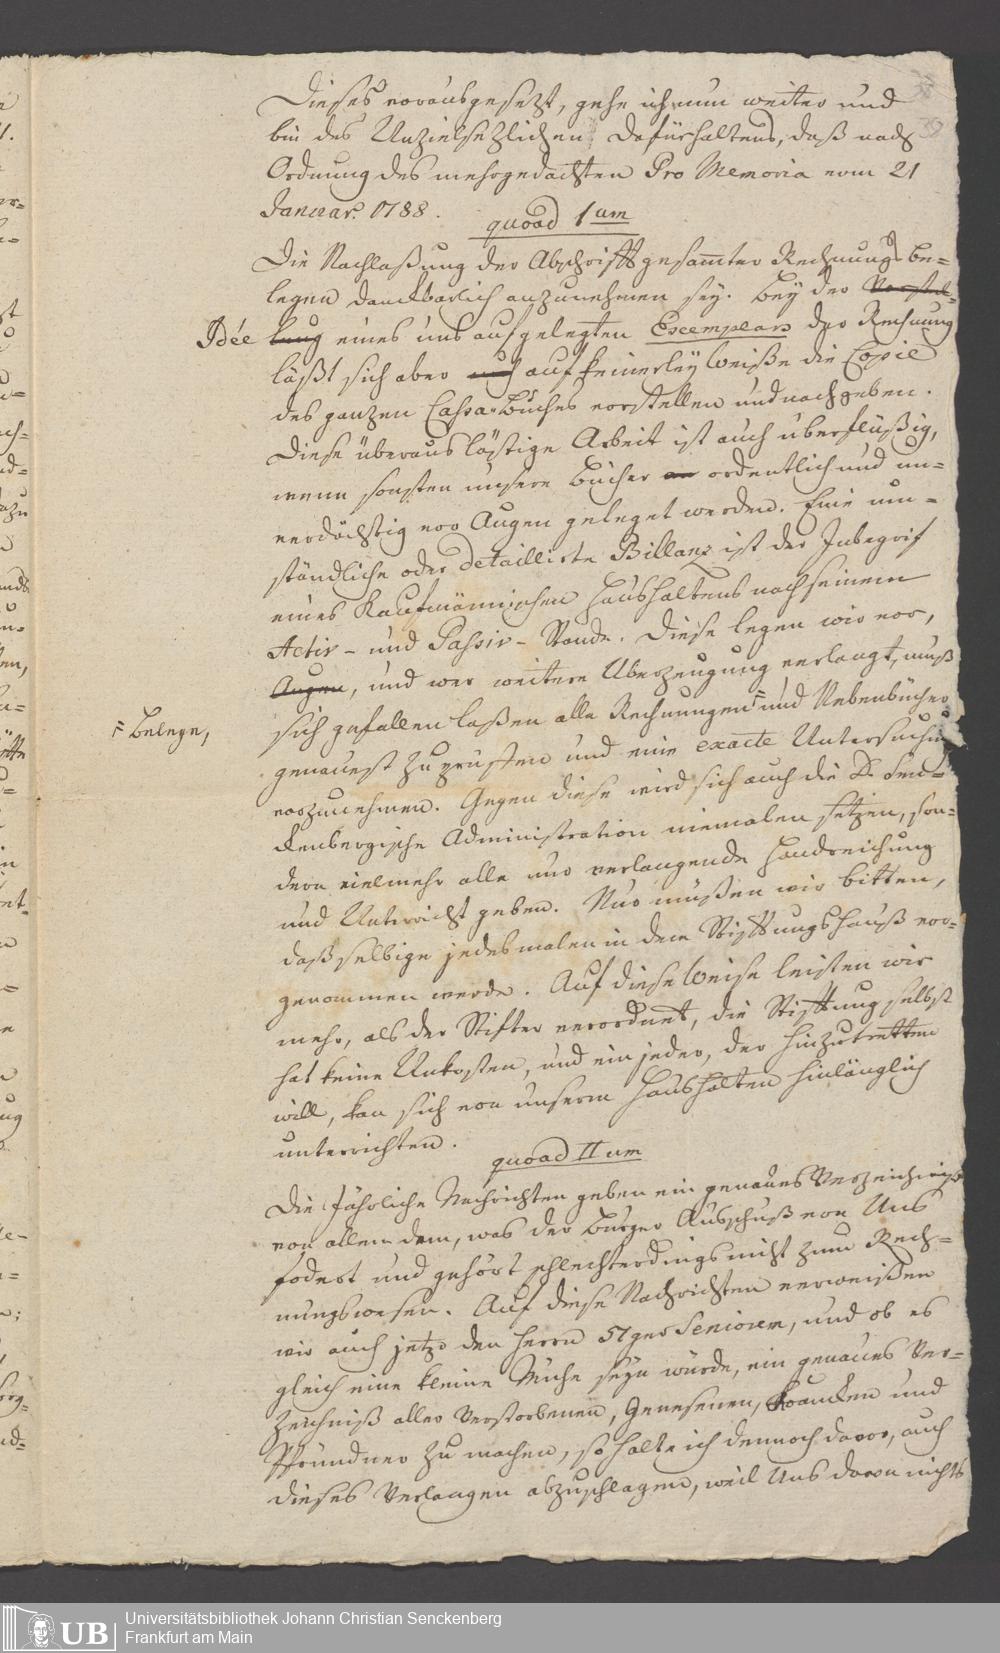 Dieses vorausgesetzt, gehe ich nun weiter und
bin des Unzielsetzlichen Dafürhaltens, daß nach
Ordnung des mehrgedachten Pro Memoria vom 21
Januar. 1788.
quoad 1um
Die Nachlaßung der Abschrifft gesamter Rechnungs be-
legen danckbarlich anzunehmen sey. Bey der Vorstel-
Idée lung eines uns aufgelegten Exemplars der Rechnung
läßt sich aber auch auf keinerley Weiße die Copie
des ganzen Cassa-Buches vorstellen und nachgeben.
Diese überaus lästige Arbeit ist auch überflüßig,
wenn sonsten unsere Bücher ordentlich und un-
verdächtig vor Augen geleget werden. Eine um-
ständliche oder detaillirte Billanz ist der Inbegrif
eines Kaufmännischen Haushaltens nach seinem
Activ- und Passiv-Stande. Diese legen wir vor,
Augen, und wer weitere Uberzeugung verlangt, muß
sich gefallen laßen alle Rechnungen = und Nebenbücher
= Belege,
genauest zu prüffen und eine exacte Untersuchung
vorzunehmen. Gegen diese wird sich auch die D. Sen-
ckenbergische Administration niemalen setzen, son-
dern vielmehr alle nur verlangende Handreichung
und Unterricht geben. Nur müßen wir bitten,
daß selbige jedesmalen in dem Stifftungshauß vor-
genommen werde. Auf diese Weise leisten wir
mehr, als der Stifter verordnet, die Stifftung selbst
hat keine Unkosten, und ein jeder, der hinzutretten
will, kan sich von unserm Haushalten hinlänglich
unterrichten.
quoad II um
Die Jährliche Nachrichten geben ein genaues Verzeichniß
von allem dem, was der Burger Ausschuß von Uns
fodert und gehört schlechterdings nicht zum Rech-
nungswesen. Auf diese Nachrichten verweißen
wir auch jetzo den Herrn 51ger Seniorem, und ob es
gleich eine kleine Mühe seyn würde, ein genaues Ver-
zeichniß aller Verstorbenen, Genesenen, Krancken und
Pfründner zu machen, so halte ich dennoch davor, auch
dieses Verlangen abzuschlagen, weil Uns davon nichts
UB
Universitätsbibliothek Johann Christian Senckenberg
Frankfurt am Main